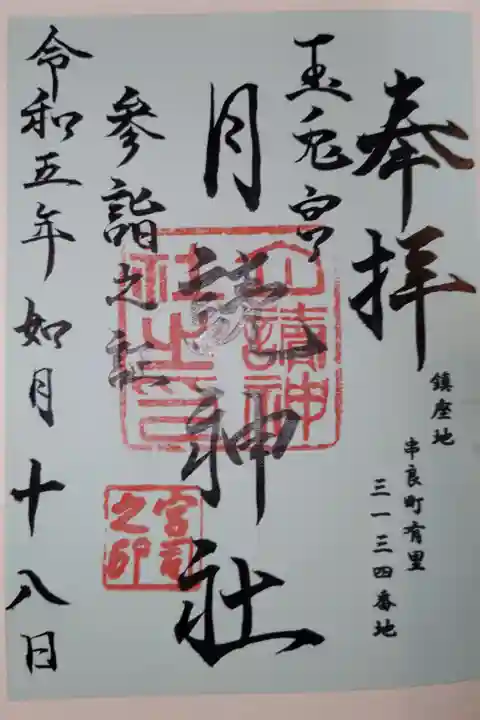 奉拝
鎮座地
串良町有里
三一三四番地
玉兎宮
月読神社
参詣之証
令和五年如月十八日
月讀神
社之印
宮司
之印